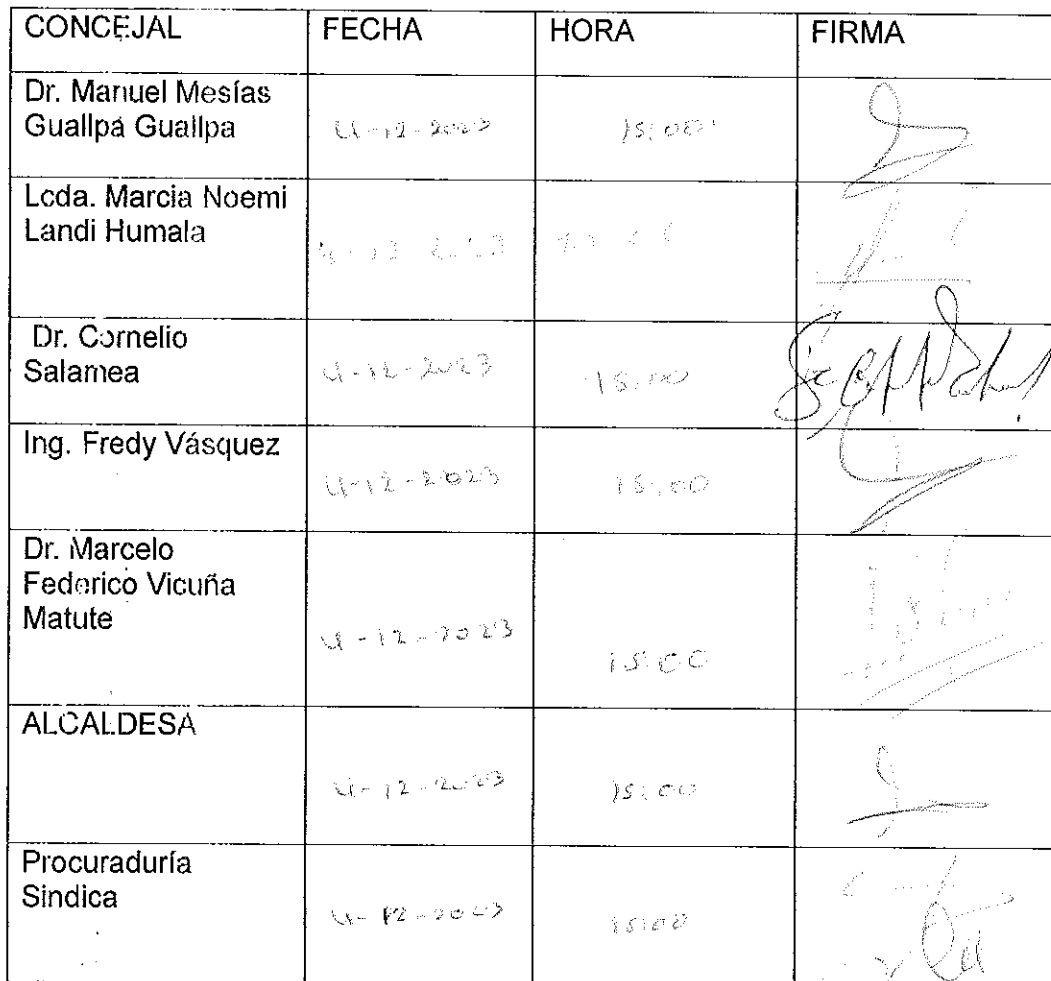 CONCEJAL FECHA HORA FIRMA
Dr. Manuel Mesías
Guallpa Guallpa 4-12-2023 15:00
Lcda. Marcia Noemi
Landi Humala 4-12-2023
Dr. Cornelio
Salamea 4-12-2023 15:00
Ing. Fredy Vásquez
4-12-2023 15:00
Dr. Marcelo
Federico Vicuña
Matute
4-12-2023 15:00
ALCALDESA
4-12-2023 15:00
Procuraduría
Sindica
4-12-2023 15:00